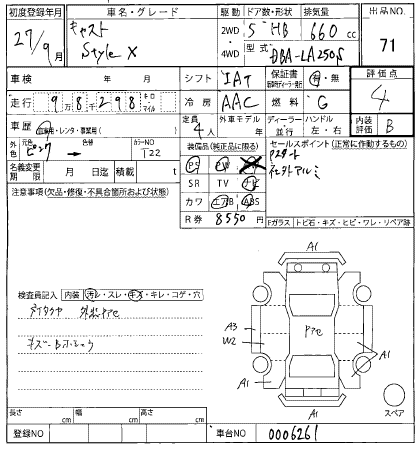 初度登録年月 車名・グレード 駆動 ドア数・形状 排気量 出品NO.
27/9月 キャスト Style X 2WD 4WD 5 HB 660 cc 71
型式 DBA-LA250S
車検 年 月 シフト IAT 保証書 有・無 評価点 4
走行 98298 キロ マイル 冷房 AAC 燃料 G
車歴 自家用・レンタ・事業用( ) 定員 4人 外車モデル 年 ディーラー 並行 ハンドル 左・右 内装評価 B
外色 元色 ピンク 色替 カラーNO T22 装備品(純正品に限る) セールスポイント(正常に作動するもの)
名義変更期限 月 日迄 積載 t PS PW
注意事項(欠品・修復・不具合箇所および状態) SR TV ナビ 社外アルミ
カワ エアB ABS
R券 8550 円 Fガラス トビ石・キズ・ヒビ・ワレ・リペア跡
A1
検査員記入 内装 汚レ・スレ・キズ・キレ・コゲ・穴
A3
W2
A1
A1
A1
スペア
長さ cm 幅 cm 高さ cm
登録NO 車台NO 0006261